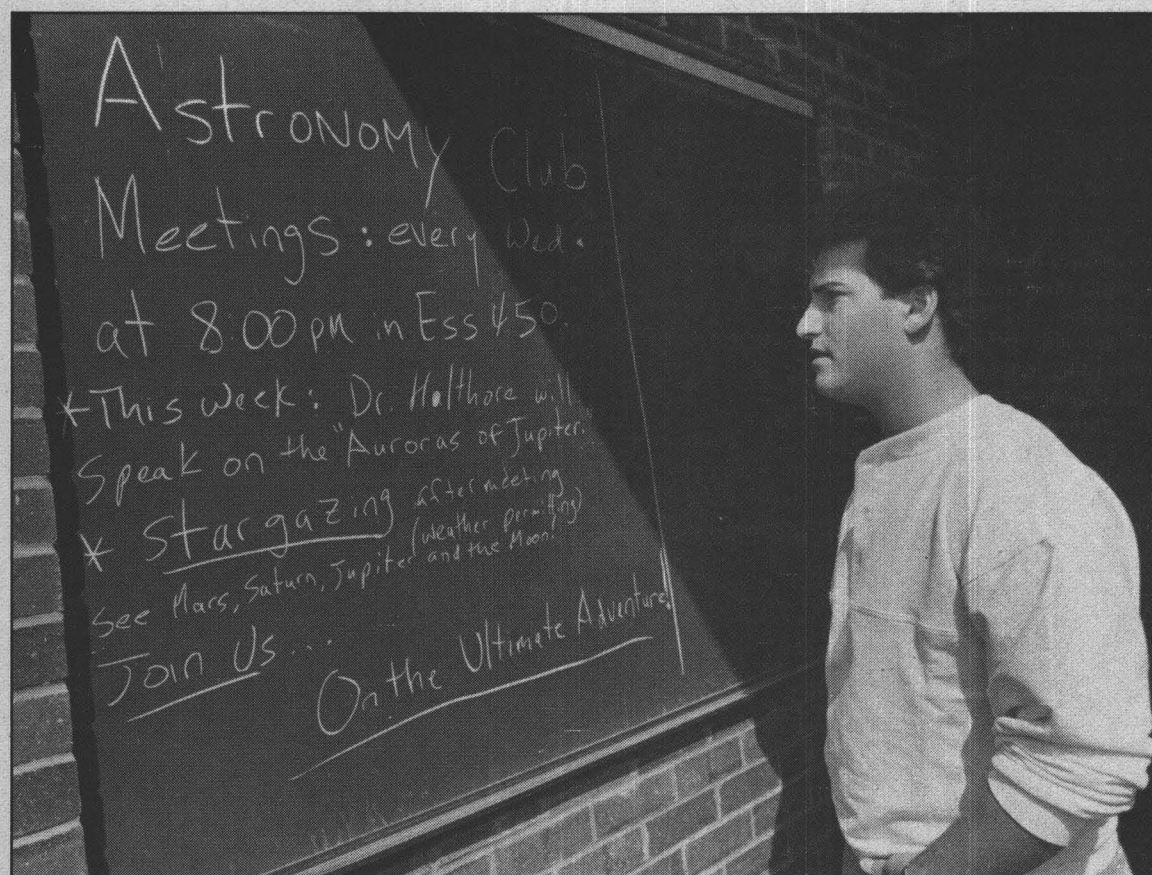 Astronomy Club
Meetings: every Wed.
at 8:00 pm in Ess 450.
* This week: Dr. Halthore will
speak on the "Auroras of Jupiter."
* Stargazing after meeting
(weather permitting)
See Mars, Saturn, Jupiter and the Moon!
Join Us...
On the Ultimate Adventure!